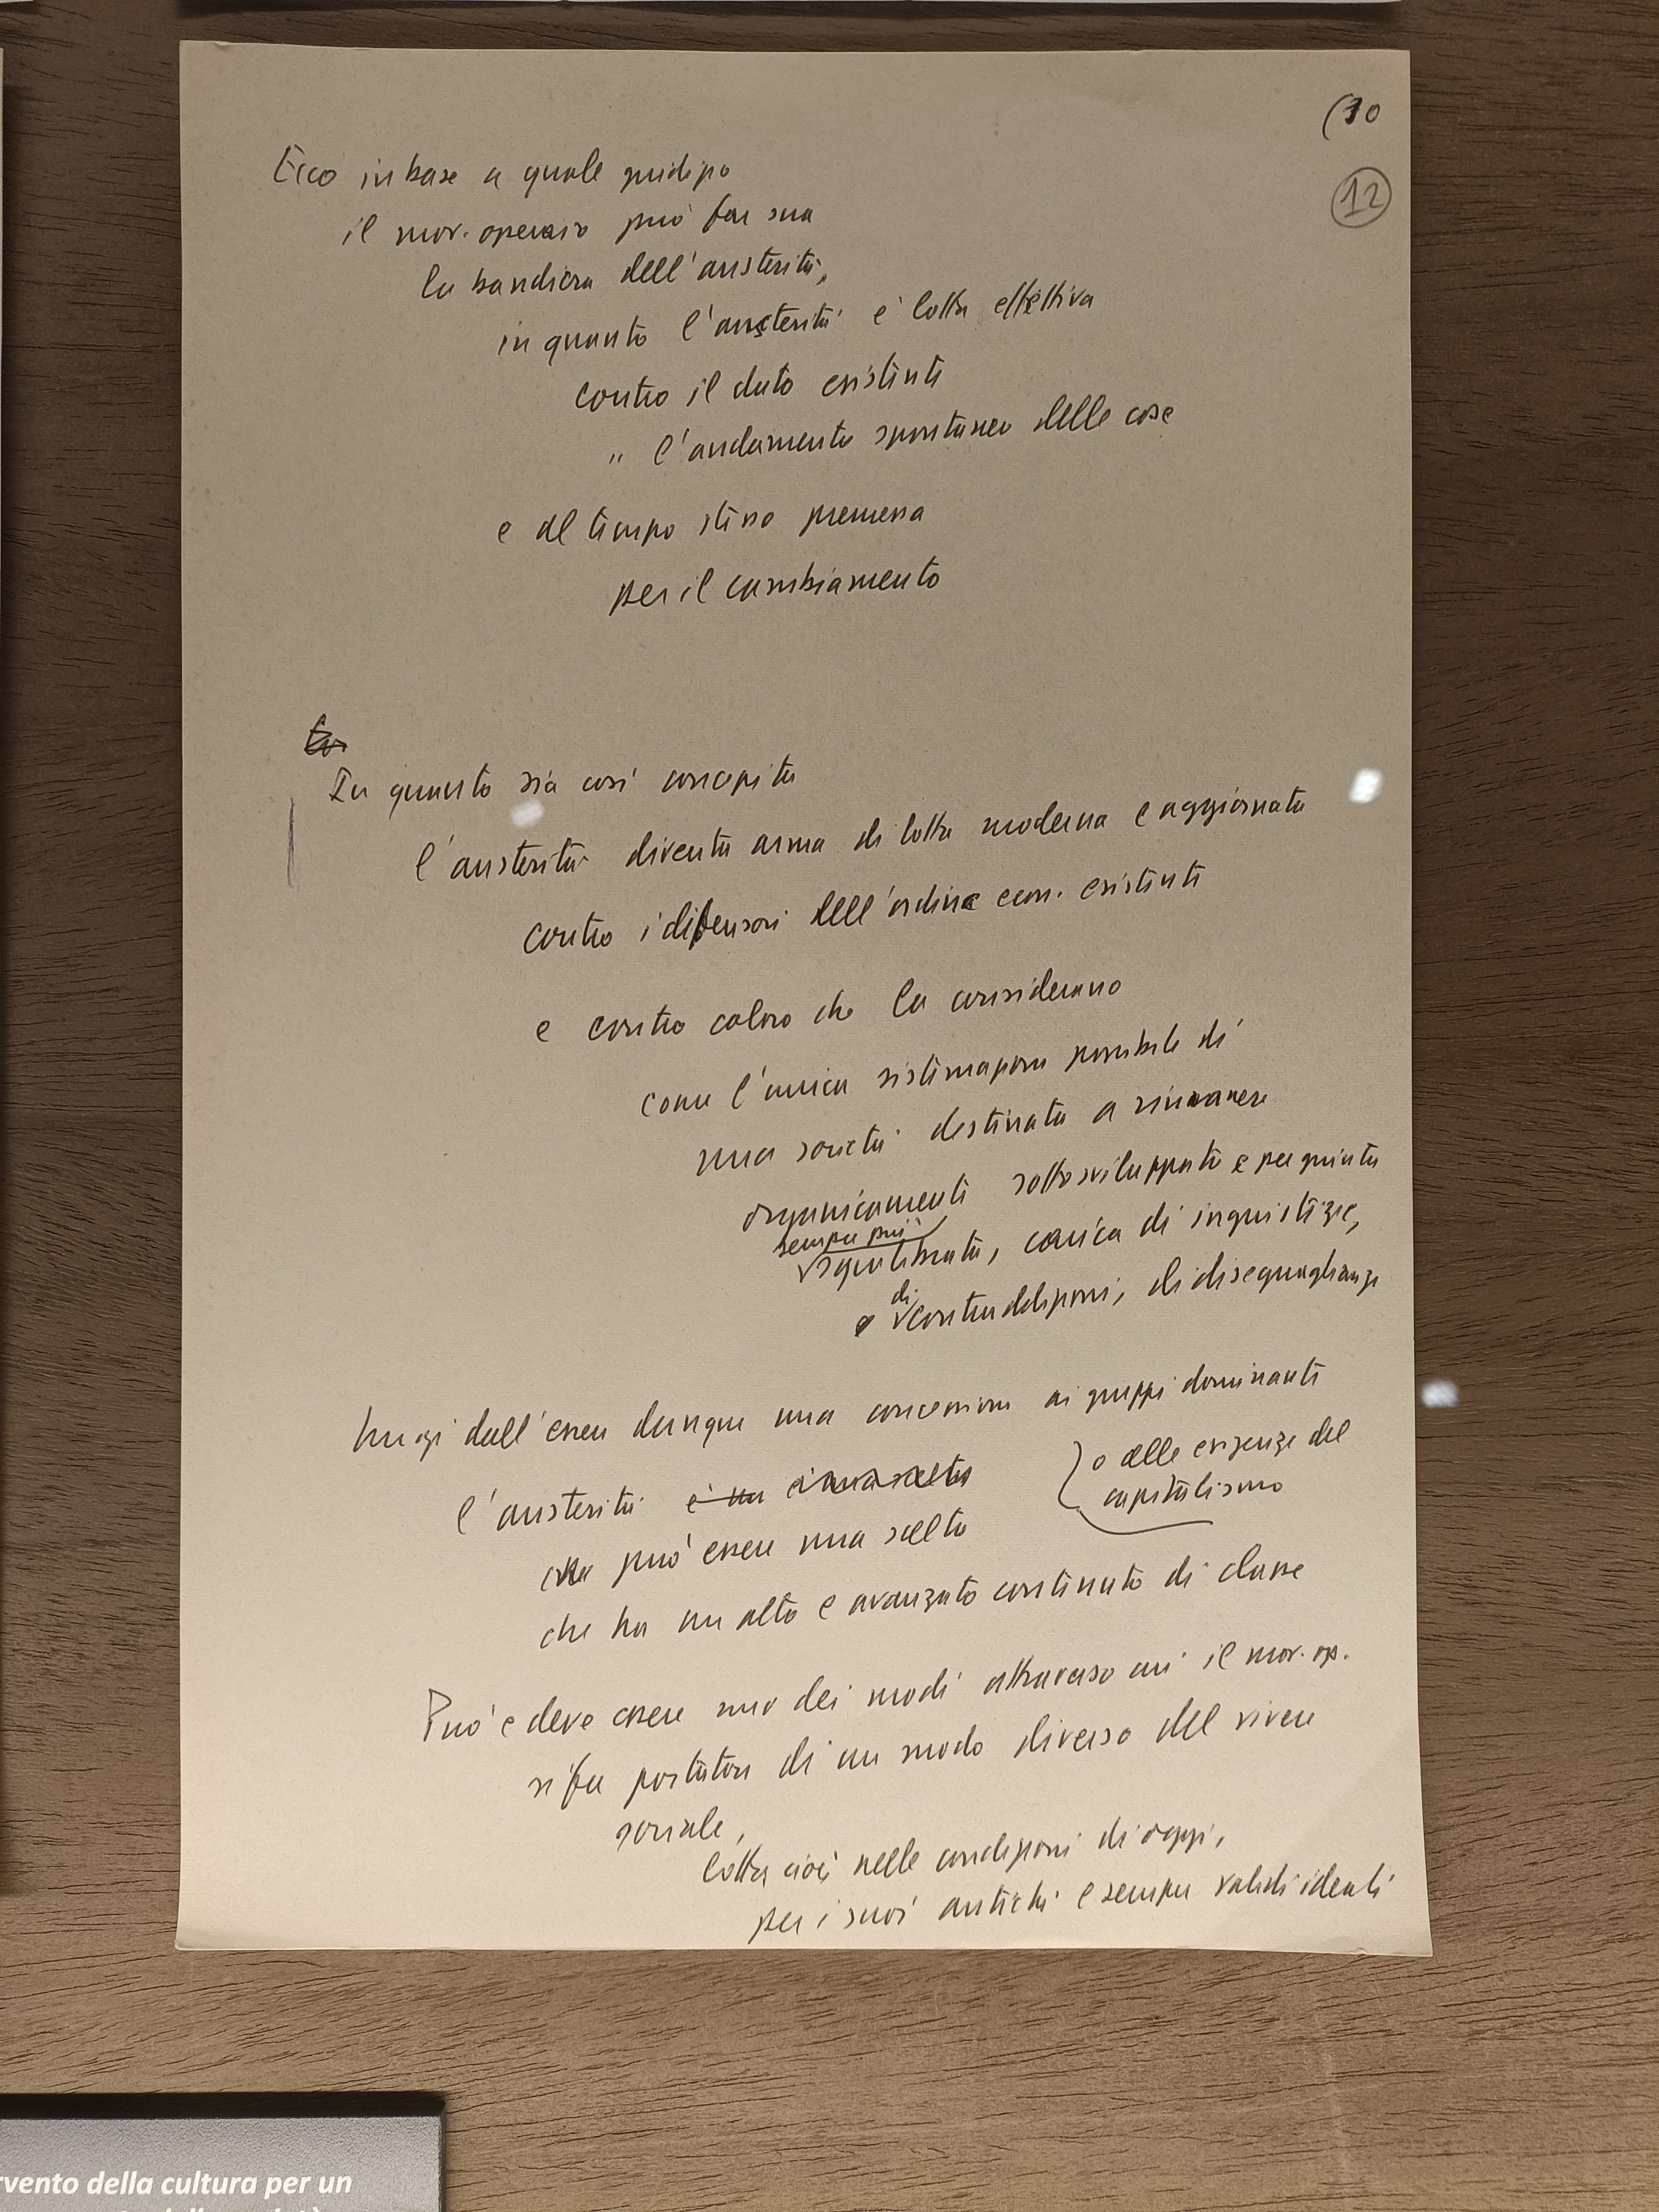 (10
12
Ecco in base a quale giudizio
il mov. operaio può far sua
la bandiera dell'austerità,
in quanto l'austerità è lotta effettiva
contro il dato esistente
" l'andamento spontaneo delle cose
e al tempo stesso premessa
per il cambiamento
In quanto sia così concepita
l'austerità diventa arma di lotta moderna e aggiornata
contro i difensori dell'ordine econ. esistente
e contro coloro che la considerano
come l'unica sistemazione possibile di
una società destinata a rimanere
organicamente sottosviluppata e per giunta
sempre più
squilibrata, carica di ingiustizie,
di
e contraddizioni, di diseguaglianze
Lungi dall'essere dunque una concessione ai gruppi dominanti
o alle esigenze del
capitalismo
l'austerità è una è una scelta
che può essere una scelta
che ha un alto e avanzato contenuto di classe
Può e deve essere uno dei modi attraverso cui il mov. op.
si fa portatore di un modo diverso del vivere
sociale,
lotta cioè nelle condizioni di oggi,
per i suoi antichi e sempre validi ideali
rvento della cultura per un